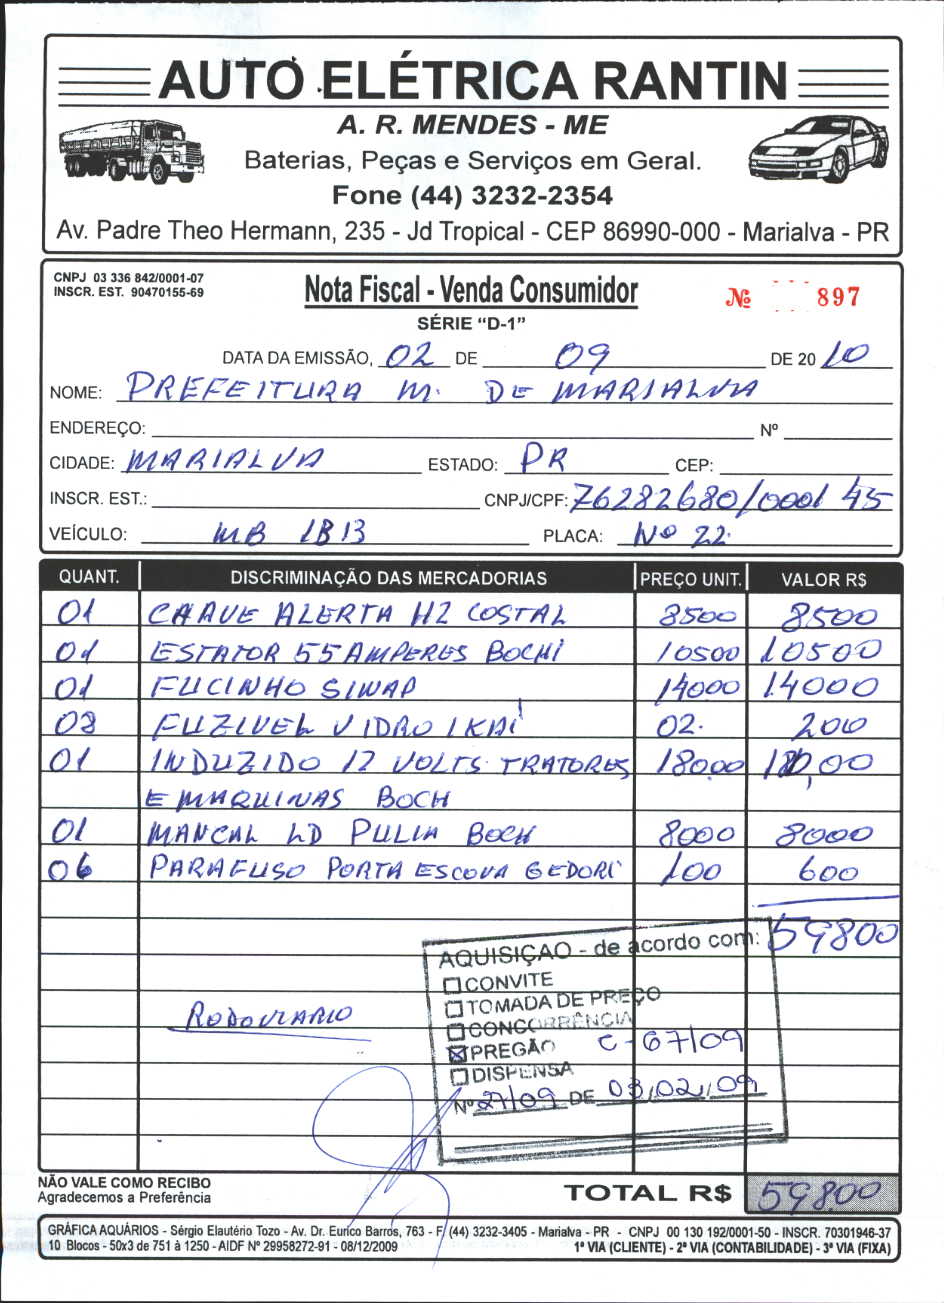 AUTO ELÉTRICA RANTIN
A. R. MENDES - ME
Baterias, Peças e Serviços em Geral.
Fone (44) 3232-2354
Av. Padre Theo Hermann, 235 - Jd Tropical - CEP 86990-000 - Marialva - PR
CNPJ 03 336 842/0001-07
INSCR. EST. 90470155-69
Nota Fiscal - Venda Consumidor
Nº 897
SÉRIE "D-1"
DATA DA EMISSÃO, 02 DE 09 DE 20 10
NOME: PREFEITURA M. DE MARIALVA
ENDEREÇO: Nº
CIDADE: MARIALVA ESTADO: PR CEP:
INSCR. EST.: CNPJ/CPF: 76282680/0001 45
VEÍCULO: MB 1813 PLACA: Nº 22.
QUANT. DISCRIMINAÇÃO DAS MERCADORIAS PREÇO UNIT. VALOR R$
01 CHAVE ALERTA H2 COSTAL 8500 8500
01 ESTATOR 55 AMPERES BOCHI 10500 10500
01 FUCINHO SINAP 14000 14000
FUZIVEL VIDRO IKAI 02. 200
01 INDUZIDO 12 VOLTS TRATORES 180,00 180,00
E MAQUINAS BOCH
01 MANCAL LD PULIA BOCH 8000 8000
06 PARAFUSO PORTA ESCOVA GEDORI 100 600
59800
AQUISIÇÃO - de acordo com:
CONVITE
TOMADA DE PREÇO
RODOVIARIO
CONCORRÊNCIA
PREGÃO C-67/09
DISPENSA
Nº 27/09 DE 03/02/09
NÃO VALE COMO RECIBO
Agradecemos a Preferência
TOTAL R$ 598.00
GRÁFICA AQUÁRIOS - Sérgio Elautério Tozo - Av. Dr. Eurico Barros, 763 - F. (44) 3232-3405 - Marialva - PR - CNPJ 00 130 192/0001-50 - INSCR. 70301946-37
10 Blocos - 50x3 de 751 à 1250 - AIDF Nº 29958272-91 - 08/12/2009 1ª VIA (CLIENTE) - 2ª VIA (CONTABILIDADE) - 3ª VIA (FIXA)